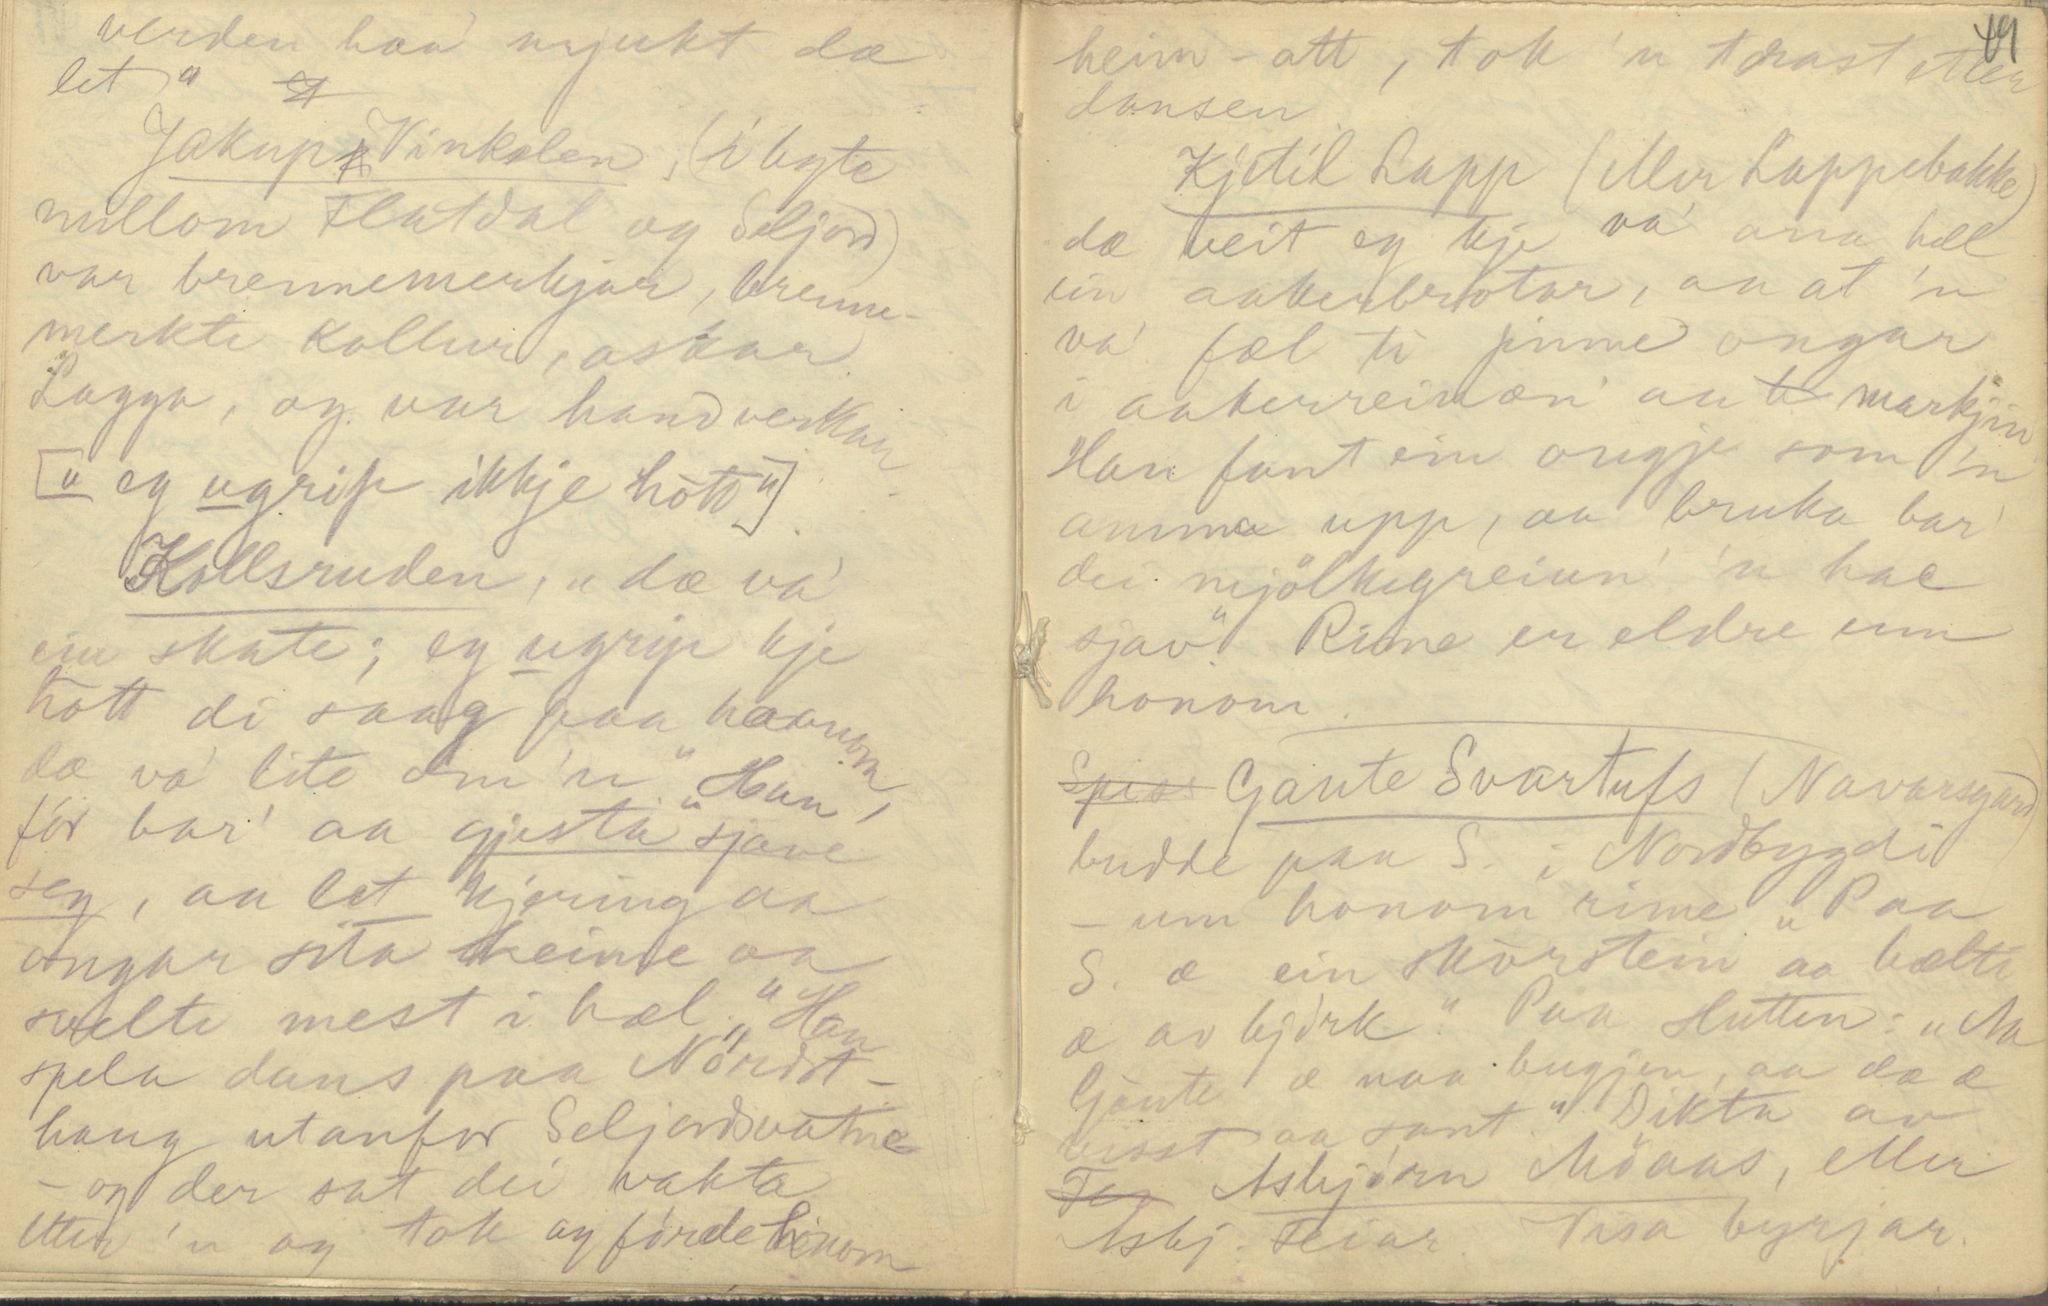 verden haa mjukt dæ
let"
Jakup Vinkelen, (i byte
millom Flatdal og Seljord)
var brennemerkjar, brenne-
merkte Kollur, askar
Lagga, og var handverkar
["eg ugrip ikkje hott"]
Kollsruden, "dæ va'
ein skate; eg ugrip kje
hott di saag paa haanom,
dæ va' lite om 'n" Han
för bar' aa "gjesta sjave
seg, aa let kjering aa
ongar sita heime aa
svelte mest i hæl." Han
spela dans paa "Nordst-
haug utanfor Seljordsvatne
- og der sat dei vakta
etter 'n og tok og förde honom
49
heim-att, tok 'n trast etter
dansen
Kjetil Lapp (eller Lappebakke)
dæ veit eg kje va' ana hell
ein aakerbrotar, aa at 'n
va' fæl ti finne ongar
i aakerreinæn' aa markjin
Han fant ein ongje som 'n
amma upp, aa bruka bar'
dei mjölkegreiun' 'n hae
sjav" Rime er eldre enn
honom.
Gaute Svartufs (Navarsgard)
budde paa S. i Nordbygdi
- um honom rime "Paa
S. æ ein skorstein aa bælte
æ av bjørk". Paa Hutten: "Aa
Gaute æ naa bugjen, aa dæ æ
visst aa sant." Dikta av
Asbjörn Möaas, eller
Asbj. Teiar. Visa byrjar.